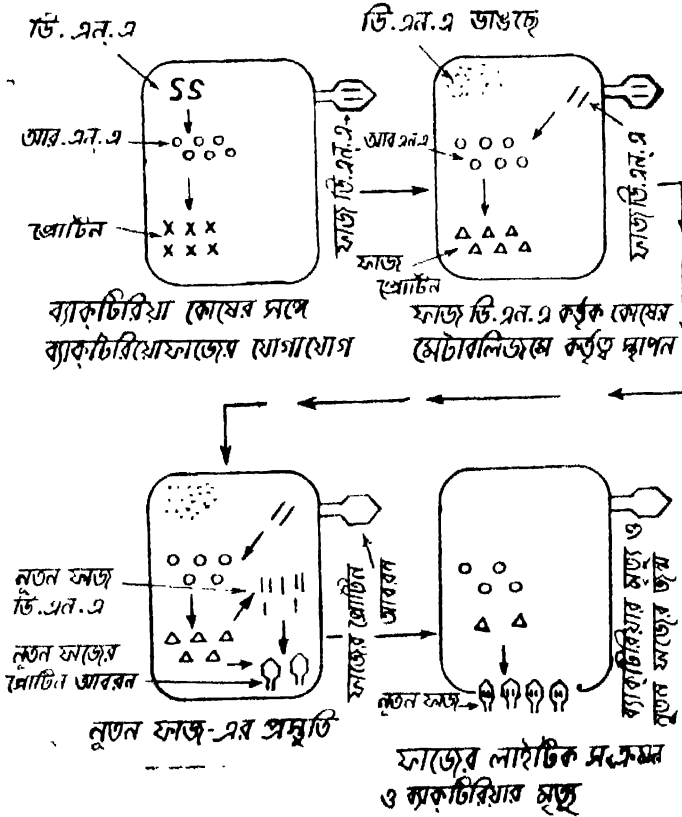 ডি. এন. এ
আর. এন. এ
প্রোটিন
ফাজ ডি. এন. এ
ব্যাক্‌টিরিয়া কোষের সঙ্গে
ব্যাক্‌টিরিয়োফাজের যোগাযোগ
ডি. এন. এ ভাঙছে
আর এন এ
ফাজ ডি. এন. এ
ফাজ
প্রোটিন
ফাজ ডি. এন. এ কর্তৃক কোষের
মেটাবলিজমে কর্তৃত্ব স্থাপন
নূতন ফাজ
ডি. এন. এ
নূতন ফাজের
প্রোটিন আবরন
ফাজের প্রোটিন
আবরন
নূতন ফাজ-এর প্রস্তুতি
নূতন ফাজ
ব্যাক্‌টিরিয়ার মৃত্যু ও
নূতন ফাজের জন্ম
ফাজের লাইটিক সংক্রমন
ও ব্যাক্‌টিরিয়ার মৃত্যু